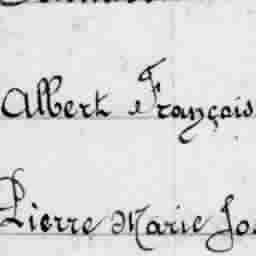 Albert François
Pierre Marie Jos